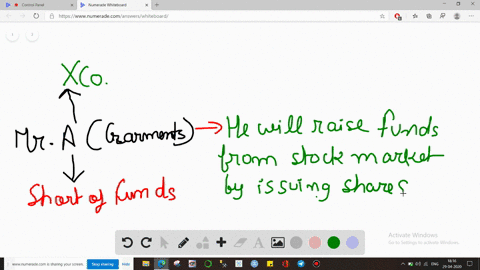 Control Panel
Numerade Whiteboard
https://www.numerade.com/answers/whiteboard/
X Co.
Mr. A (Garments) → He will raise funds
from stock market
by issuing shares
Short of funds
Activate Windows
Go to Settings to activate Windows.
www.numerade.com is sharing your screen.
Stop sharing
Hide
ENG
16:16
29-04-2020